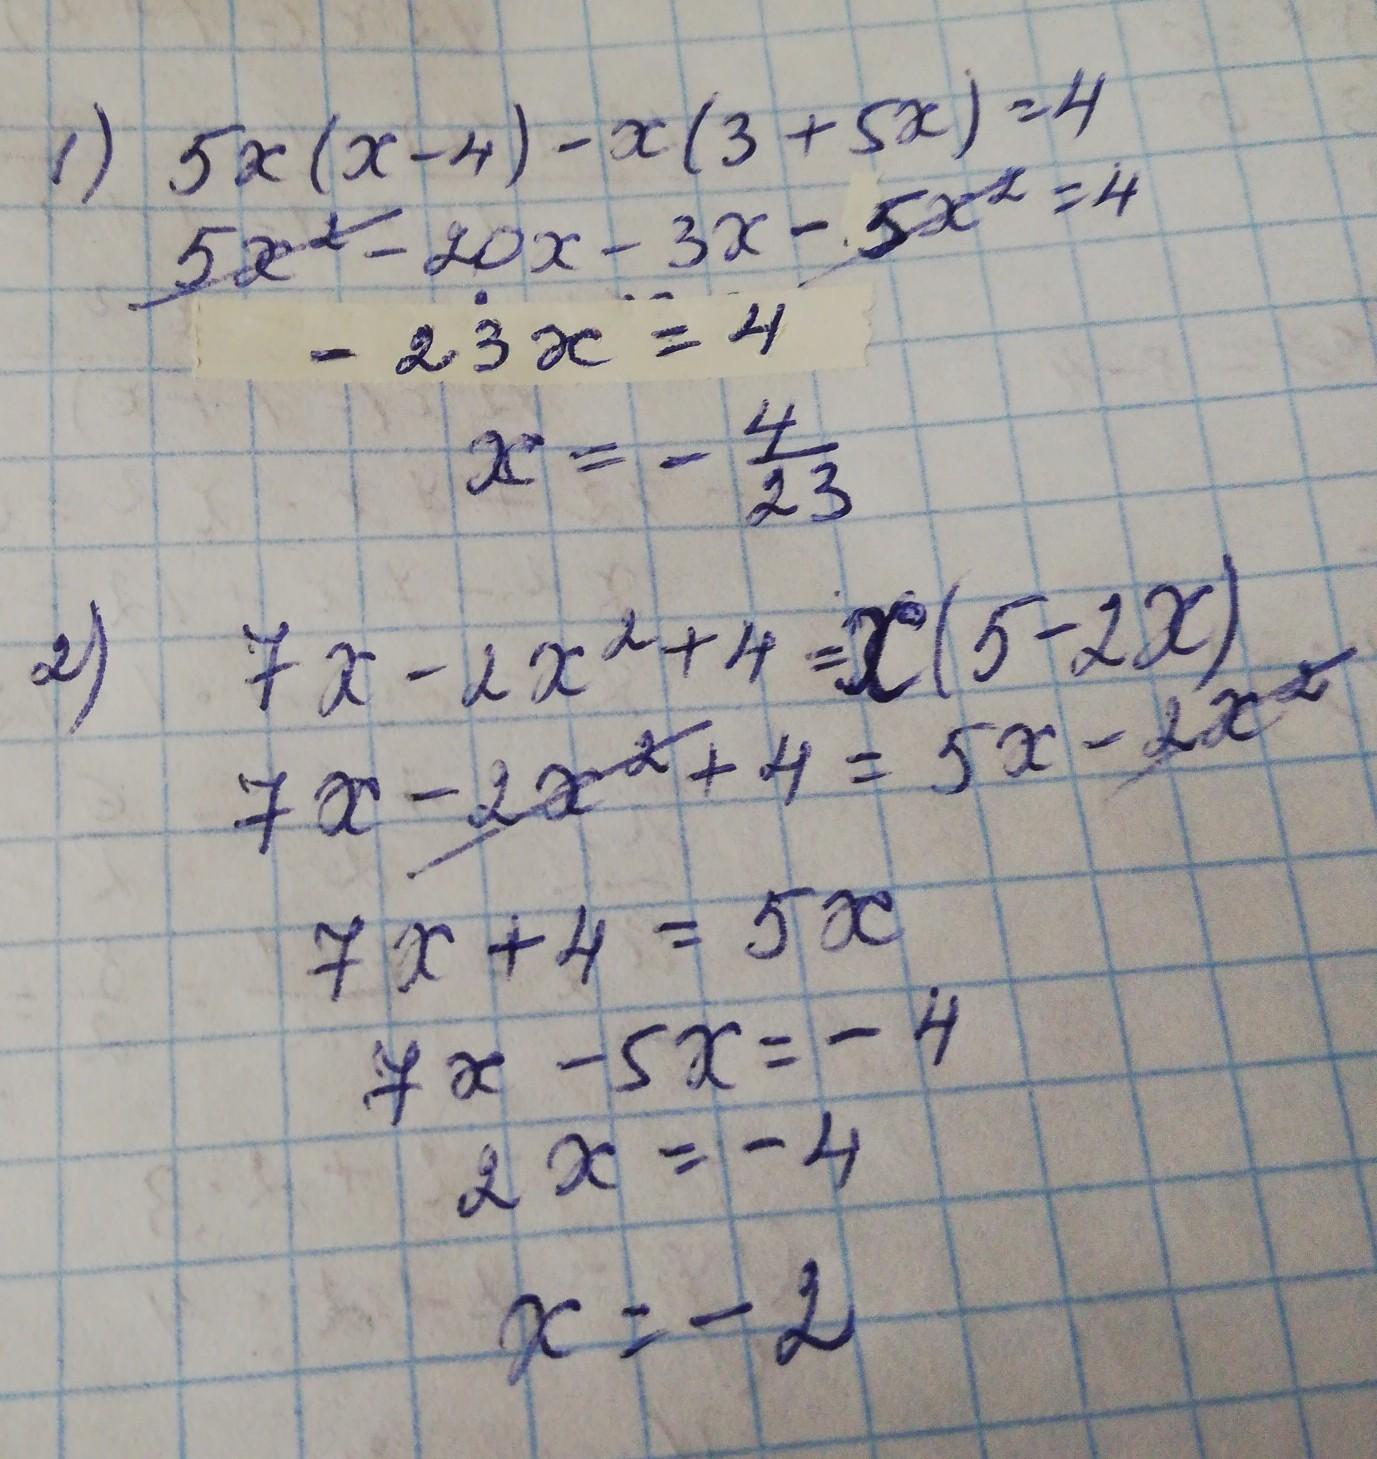 1) 5x(x-4)-x(3+5x)=4
5x²-20x-3x-5x²=4
-23x=4
x=-4/23
2) 7x-2x²+4=x(5-2x)
7x-2x²+4=5x-2x²
7x+4=5x
7x-5x=-4
2x=-4
x=-2